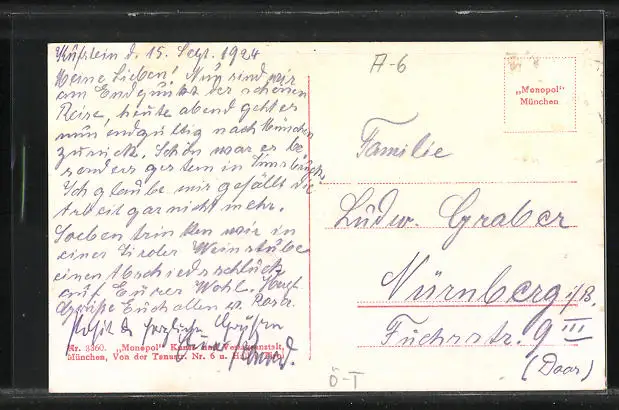 Küfstein d. 15. Sept. 1924
Meine Lieben! Nun sind wir
am Endpunkt der schönen
Reise, heute abend geht es
nun endgültig nach München
zurück. Schön war es be
sonders gestern in Innsbruck.
Ich glaube mir gefällt die
Arbeit gar nicht mehr.
Soeben trinken wir in
einer Tiroler Weinstube
einen Abschiedsschluck
auf Eurer Wohl. Herzl
Grüße Euch allen v. Rosa.
herzlichen Grüßen
Nr. 3360. „Monopol" Kunst und Verlagsanstalt,
München, Von der Tannstr. Nr. 6 u.
A-6
„Monopol"
München
Familie
Ludw. Graber
Nürnberg i/B.
Fuchsstr. 9 III
(Doos)
Ö-T